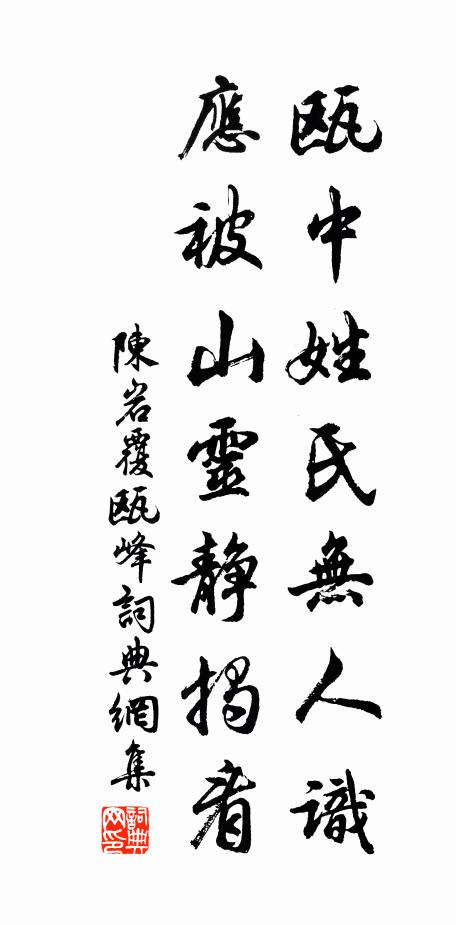 瓯中姓氏無人識
應被山靈静揭看
陳岩覆瓯峰詞典網集
詞典网印